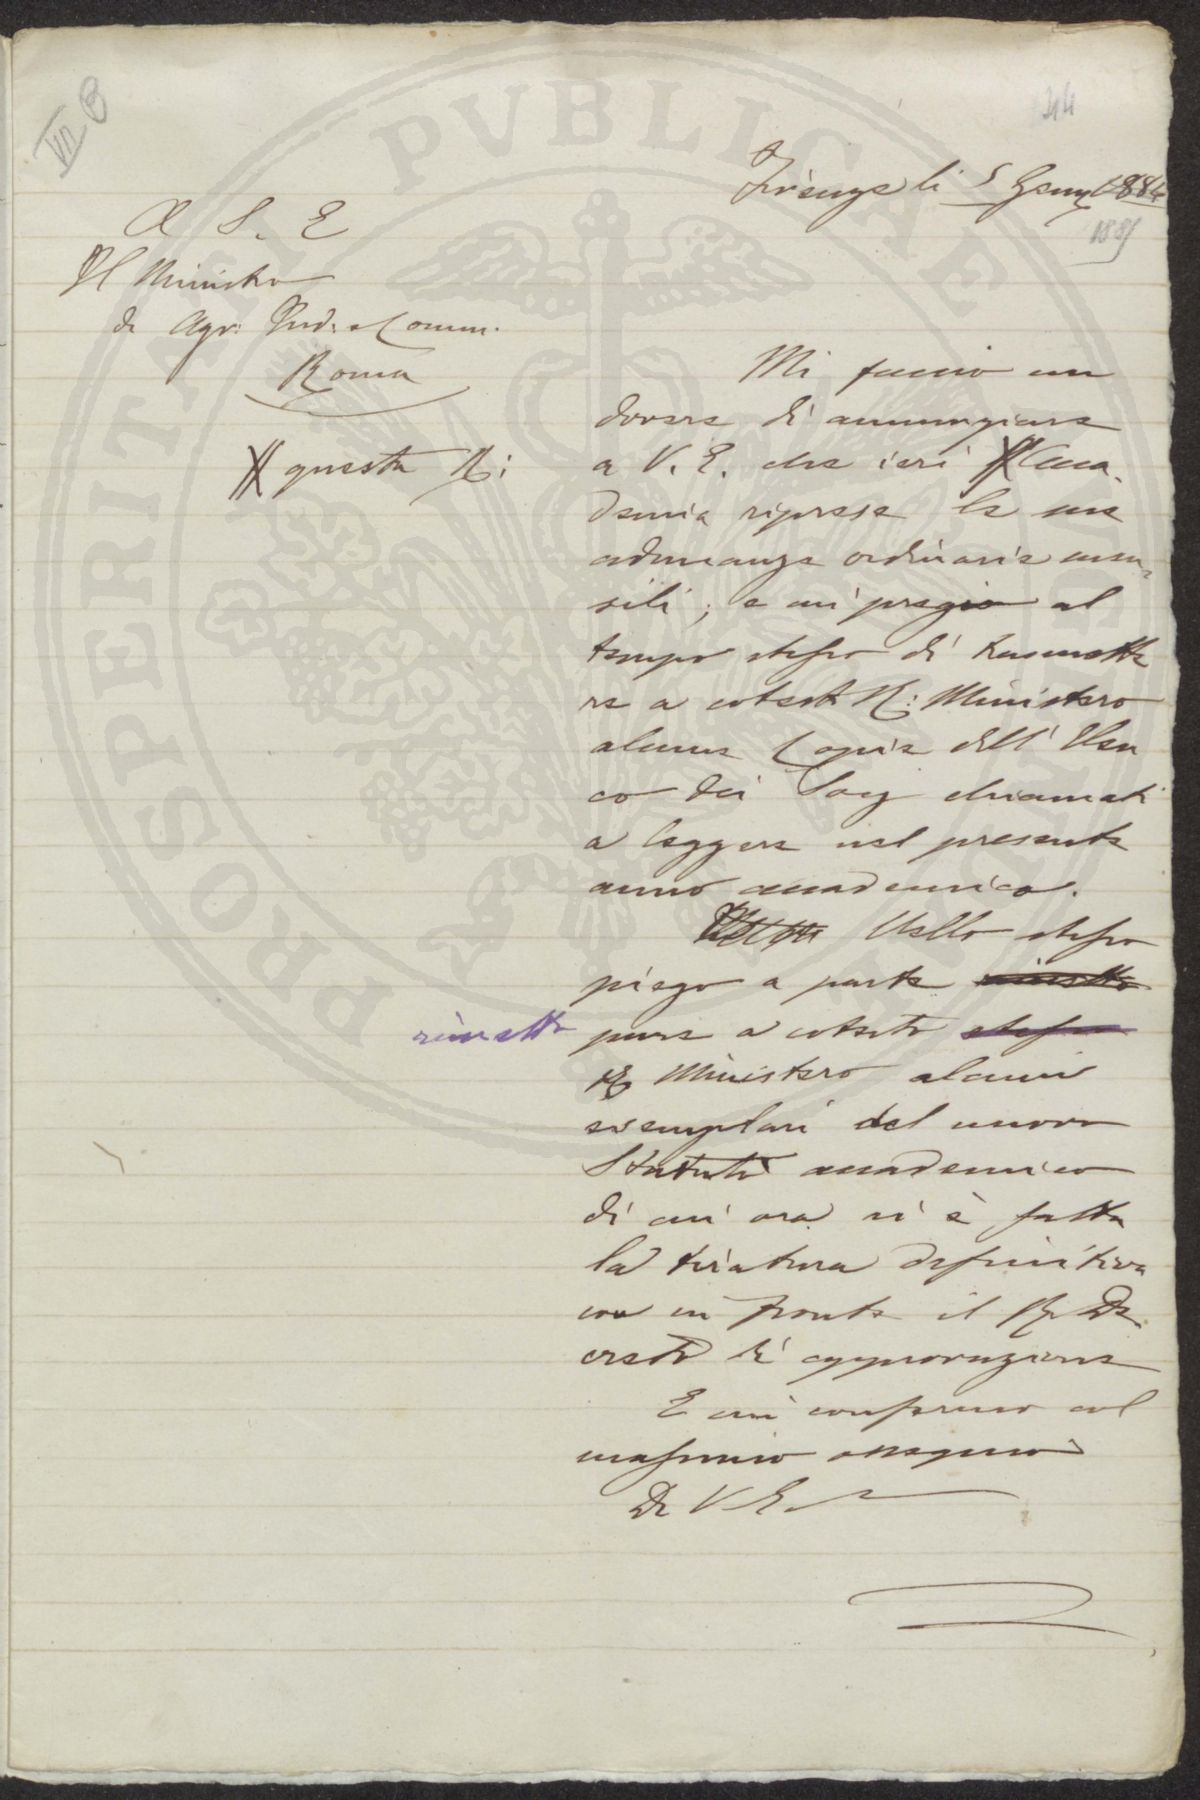 VII B
44
Firenze li 5 Genn. 1884
1885
A S. E
Il Ministro
di Agr: Ind. e Comm.
Roma
Mi faccio un
dovere di annunziare
a V. E. che ieri # l'Acca
# questa R:
demia riprese le sue
adunanze ordinarie men-
sili; e mi pregio al
tempo stesso di trasmette
re a cotesto R: Ministero
alcune Copie dell' Elen
co dei Socj chiamati
a leggere nel presente
anno accademico.
Nello stesso
piego a parte rimetto
rimetto
pure a cotesto stesso
R Ministero alcuni
esemplari del nuovo
Statuto accademico
di cui ora si è fatta
la tiratura definitiva
con in fronte il R. De-
creto di approvazione
E mi confermo col
massimo ossequio
Di V. E.
PROSPERITATI PUBLICAE AUGENDAE